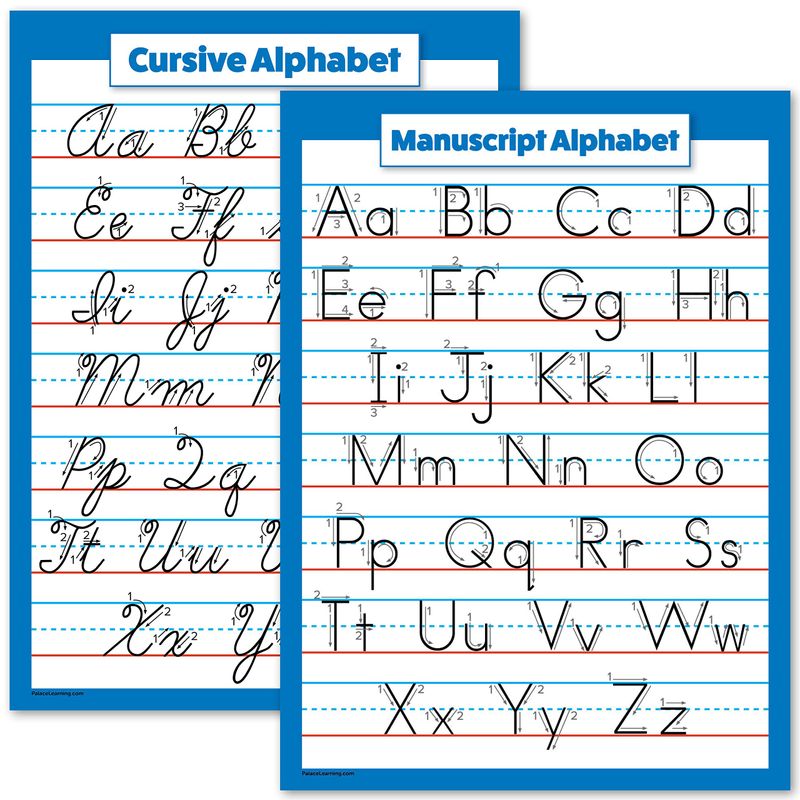 Cursive Alphabet
Aa Bb
Ee Ff
Ii Jj
Mm
Pp Qq
Tt Uu
Xx Y
PalaceLearning.com
Manuscript Alphabet
Aa Bb Cc Dd
Ee Ff Gg Hh
Ii Jj Kk Ll
Mm Nn Oo
Pp Qq Rr Ss
Tt Uu Vv Ww
Xx Yy Zz
PalaceLearning.com